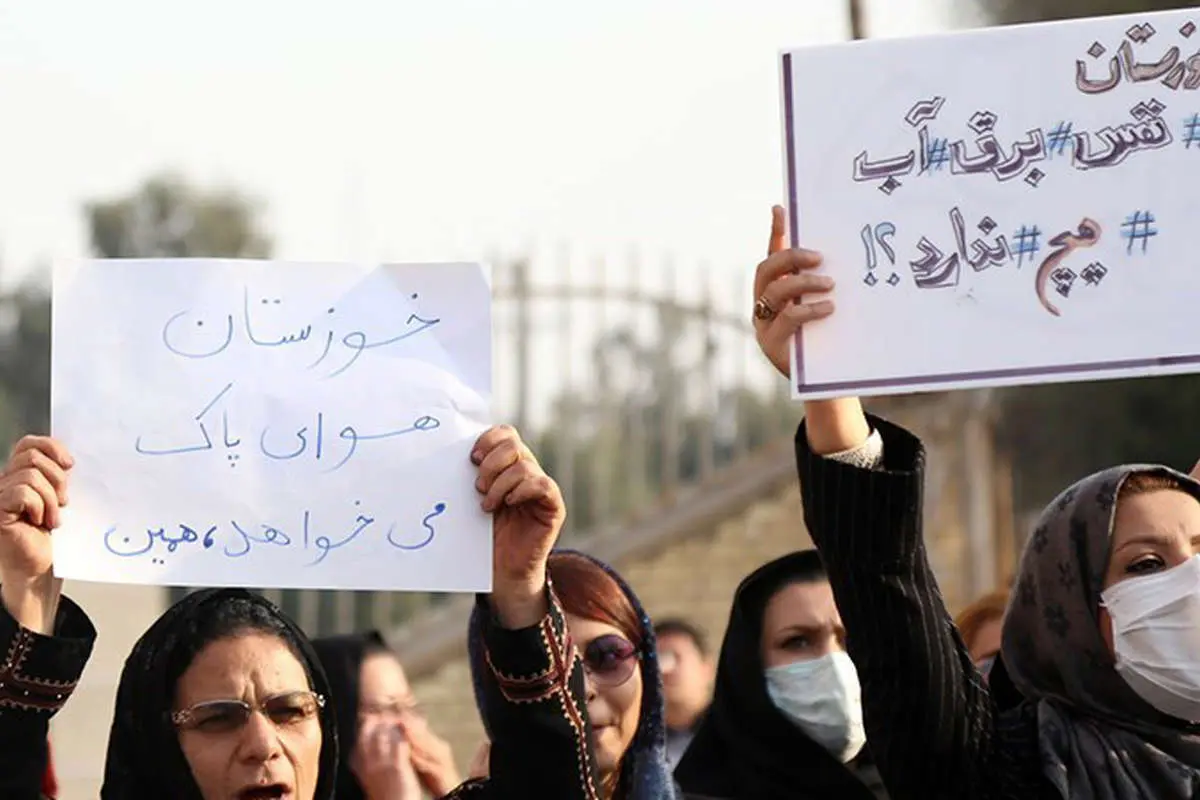 خوزستان
هوای پاک
می خواهد، همین
وزستان
#نفس #برق #آب
#هیچ #ندارد ؟!